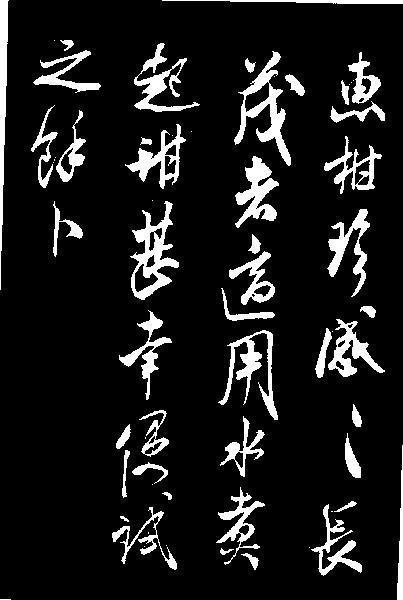 惠柑珍感〻長
茂者適用水煮
起甜甚幸便試
之餘卜